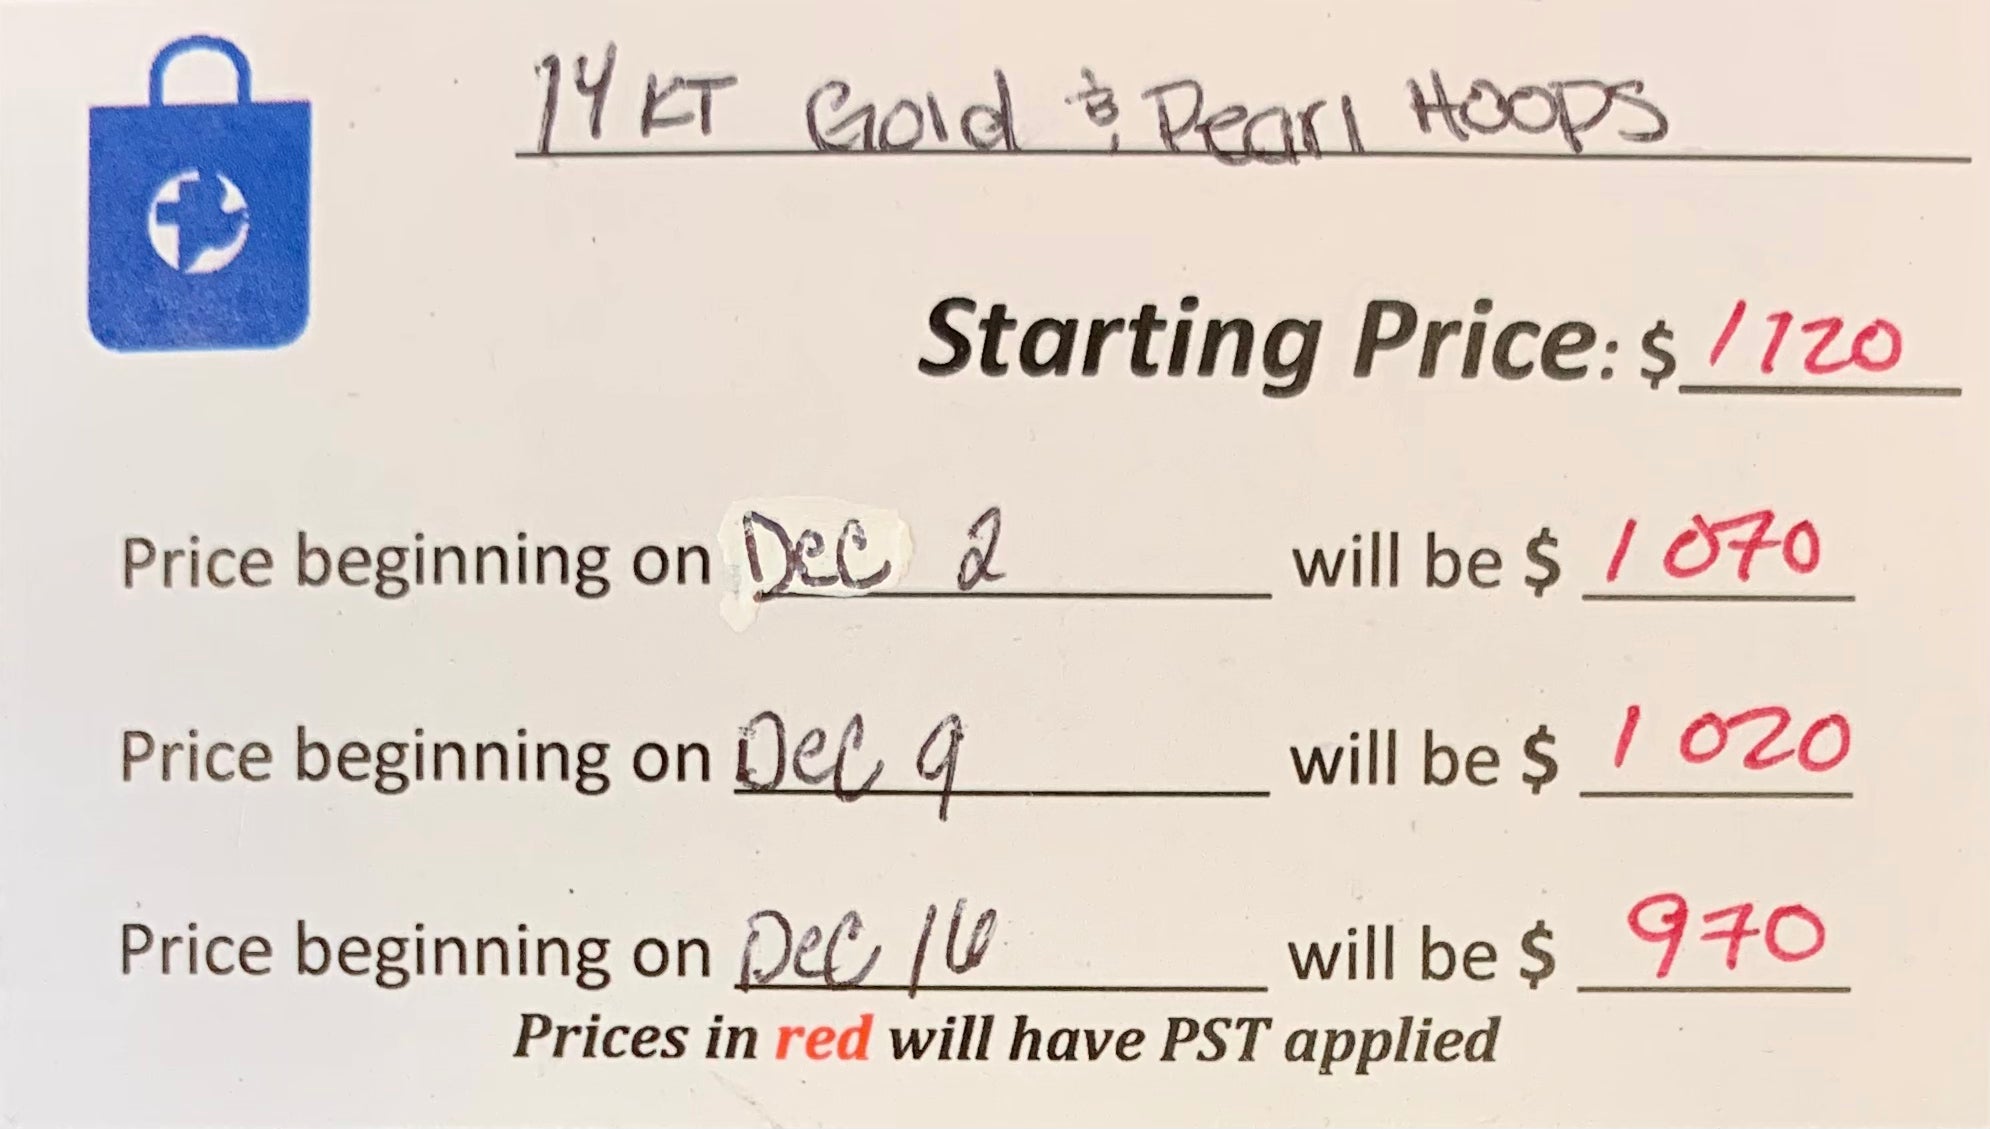 14 KT Gold & Pearl HOOPS
Starting Price: $ 1120
Price beginning on Dec 2 will be $ 1070
Price beginning on Dec 9 will be $ 1020
Price beginning on Dec 16 will be $ 970
Prices in red will have PST applied